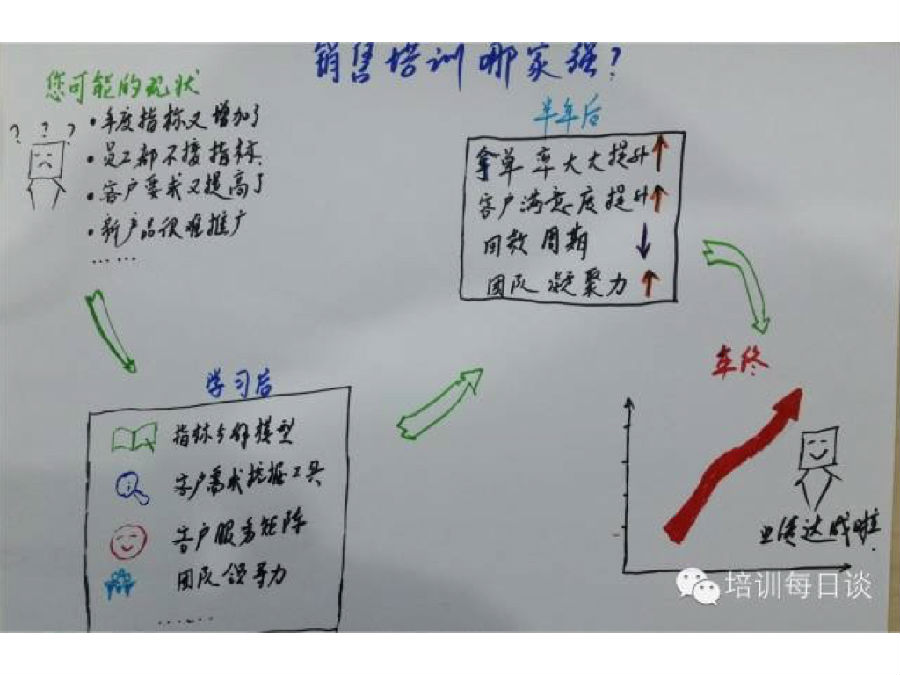 销售培训哪家强?
您可能的现状
? ? ?
·年度指标又增加了
·员工都不接指标
·客户要求又提高了
·新产品很难推广
……
学习后
指标分解模型
客户需求挖掘工具
客户服务矩阵
团队领导力
……
半年后
拿单率大大提升
客户满意度提升
回款周期
团队凝聚力
年终
业绩达成啦
培训每日谈